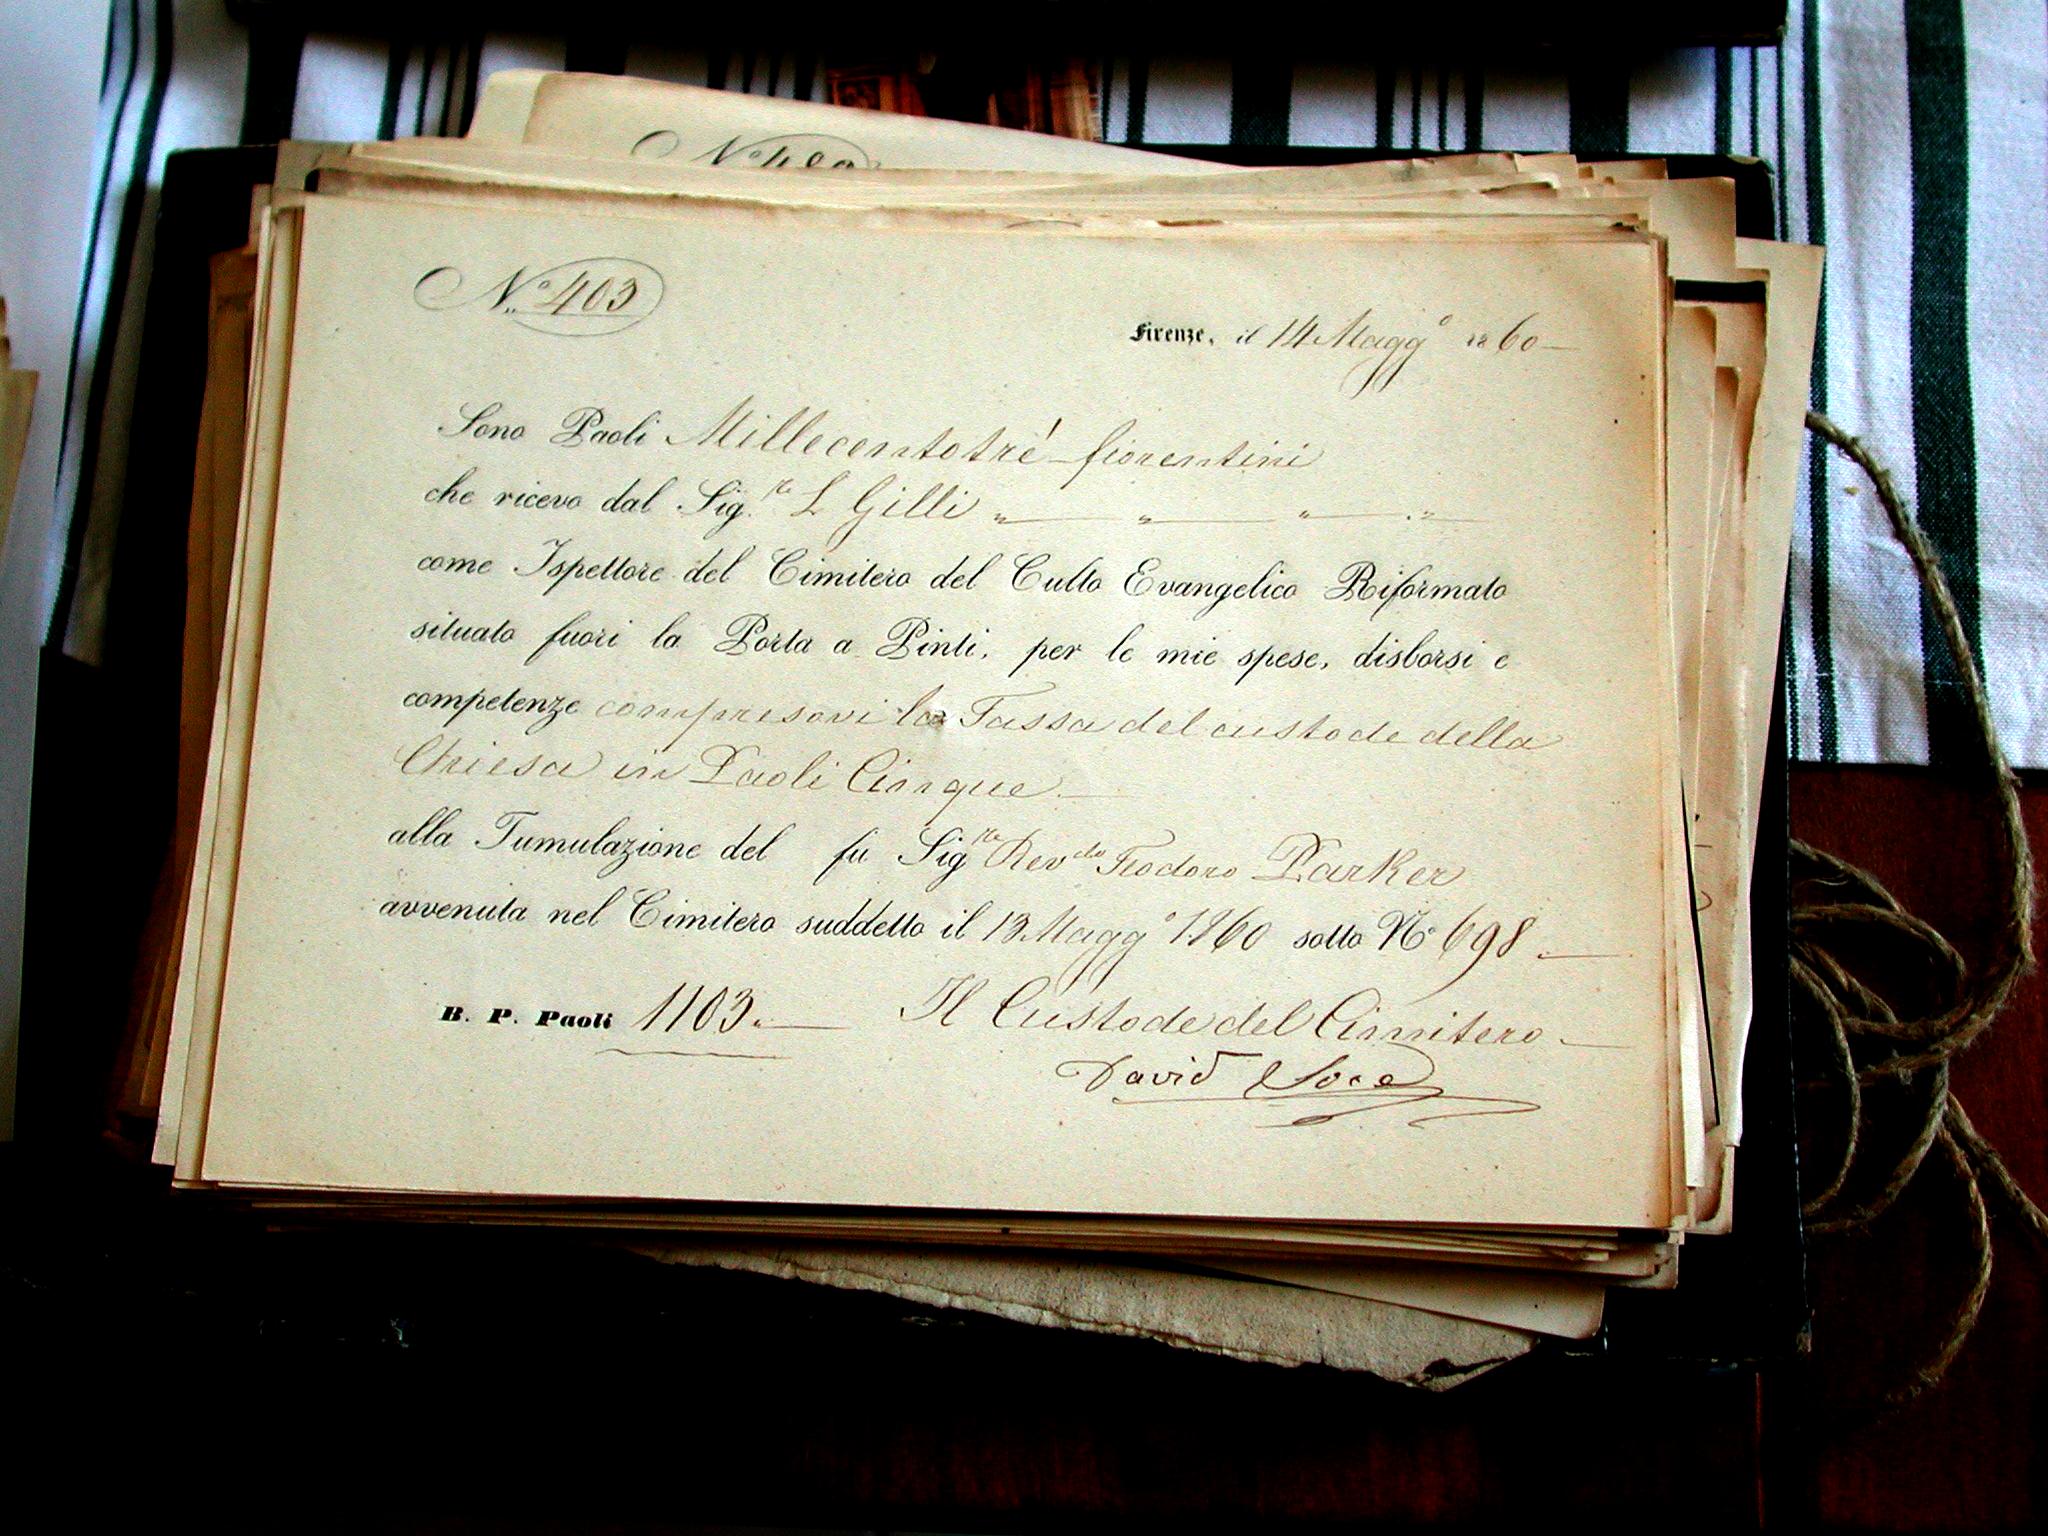 No 482
No 403
Firenze, il 14 Maggo 1860
Sono Paoli Millecentotrè fiorentini
che ricevo dal Sigre L Gilli " " " "
come Ispettore del Cimitero del Culto Evangelico Riformato
situato fuori la Porta a Pinti, per le mie spese, disborsi e
competenze compresovi la Tassa del custode della
Chiesa in Paoli Cinque
alla Tumulazione del fu Sigre Revdo Teodoro Parker
avvenuta nel Cimitero suddetto il 13 Maggo 1860 sotto No 698
B. P. Paoli 1103 Il Custode del Cimitero
David